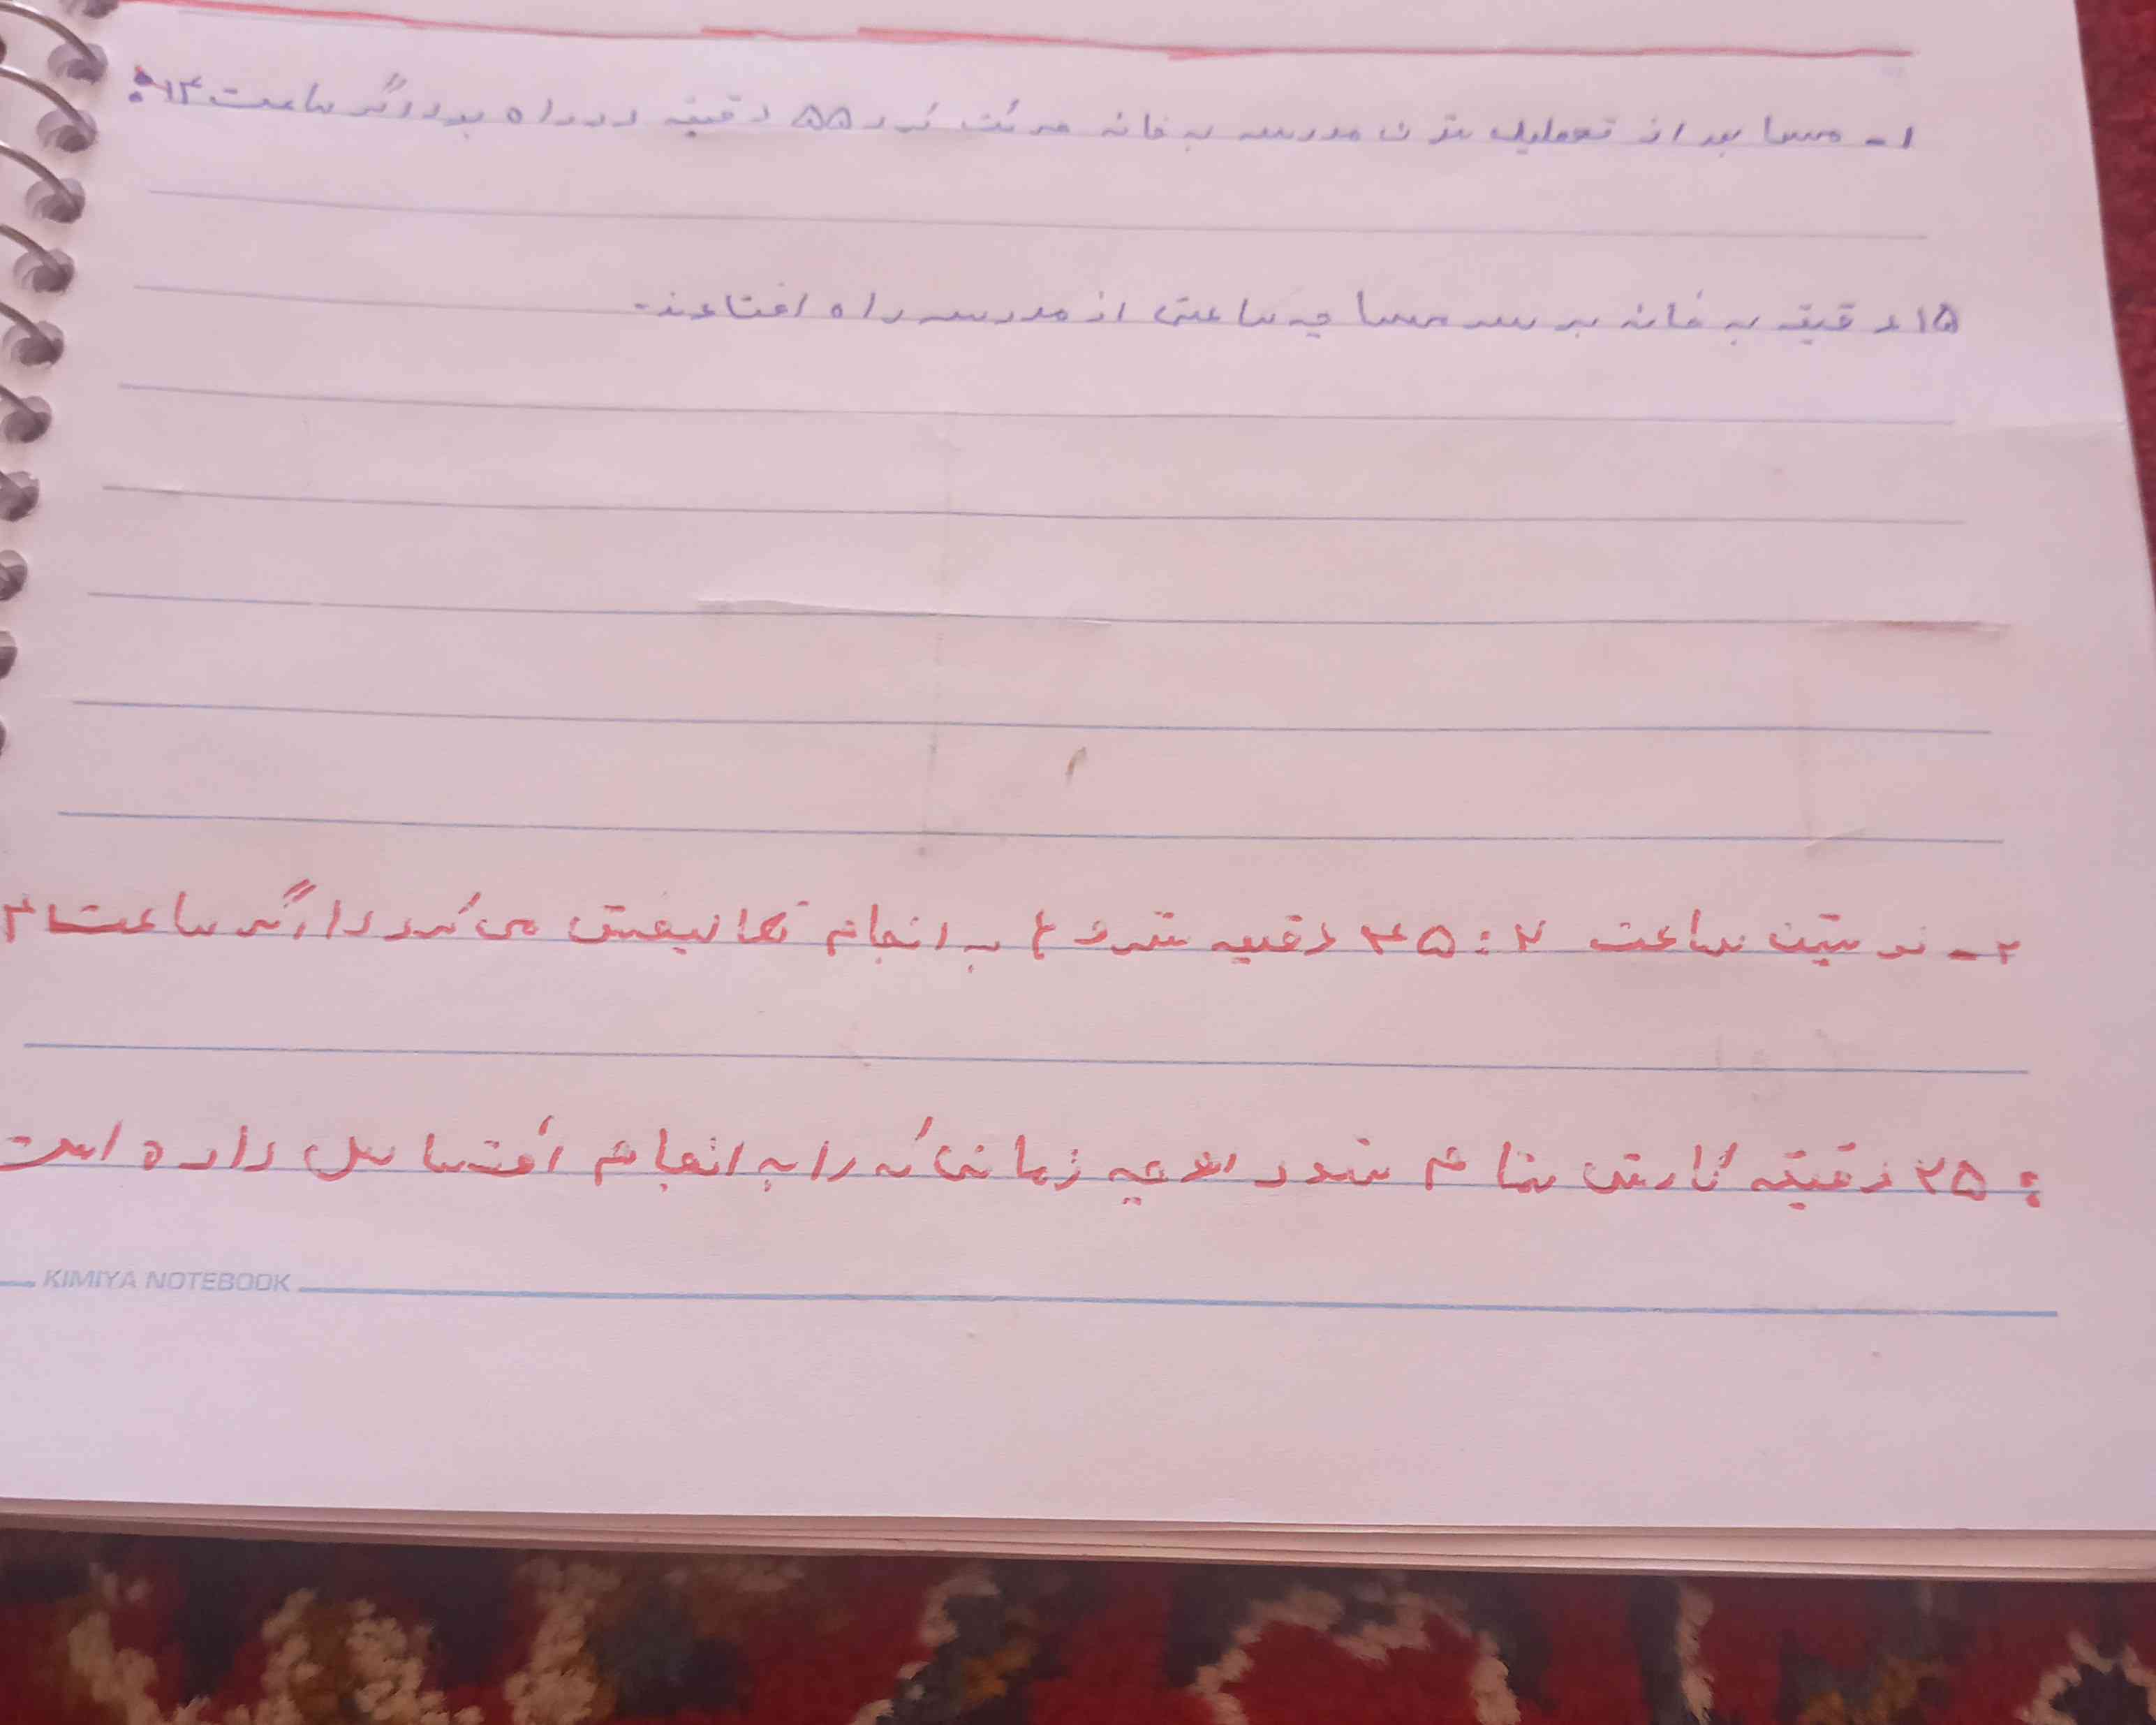 ۱- مبینا بعد از تعطیل شدن مدرسه به خانه حرکت کرد ۵۵ دقیقه در راه بود اگر ساعت ۱۴:
۱۵ دقیقه به خانه برسد مبینا چه ساعتی از مدرسه راه افتاد
۲- ساعت ۲:۴۵ دقیقه شروع به انجام تکالیفش می کرد اگر ساعت ۴
:۲۵ دقیقه کارش تمام شود او چه زمانی که را به انجام داده است
KIMIYA NOTEBOOK